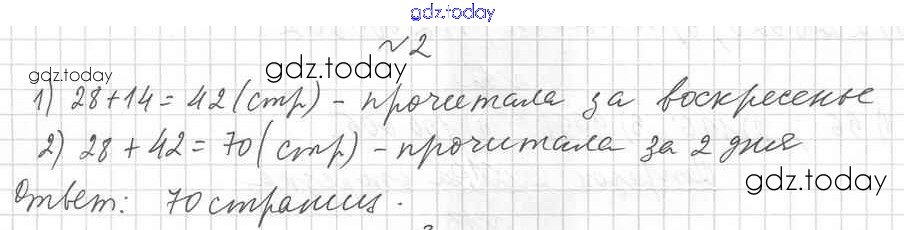 gdz.today
№2
gdz.today gdz.today
1) 28+14=42(стр) - прочитала за воскресенье
2) 28+42=70(стр) - прочитала за 2 дня
gdz.today
Ответ: 70 страниц.